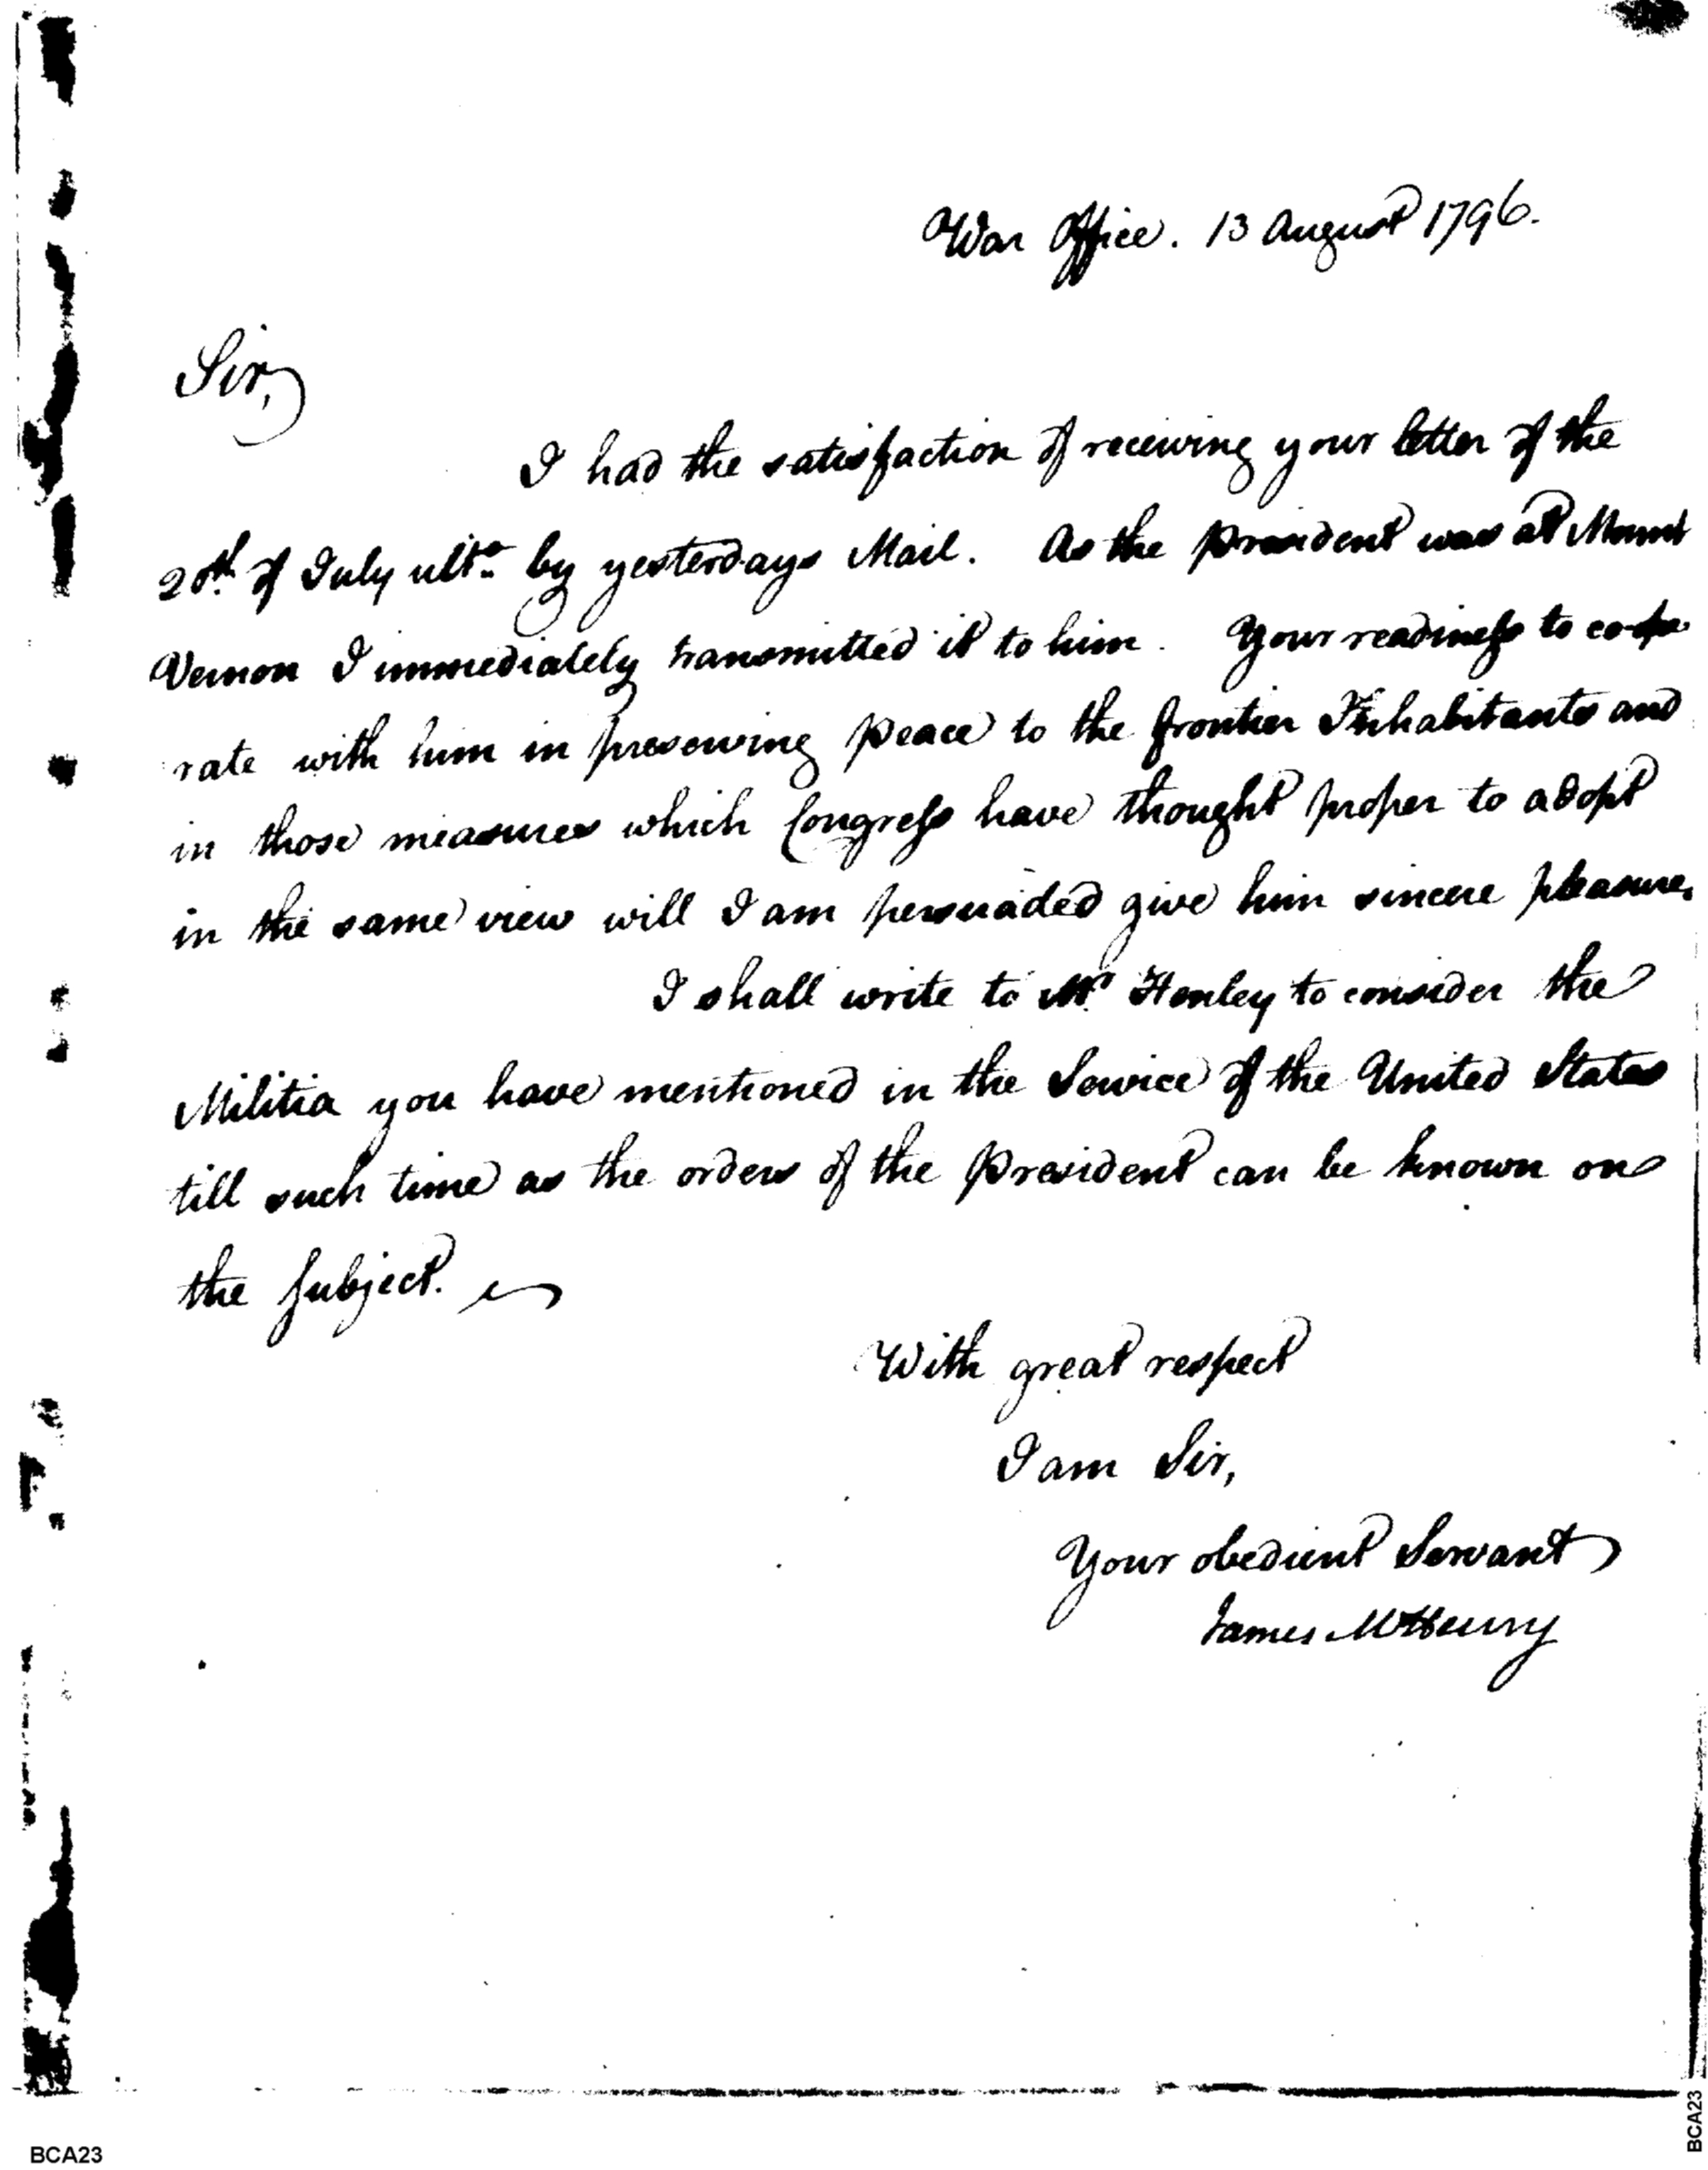 War Office. 13 August 1796.
Sir,
I had the satisfaction of receiving your letter of the
20th. of July ulto. by yesterdays Mail. As the President was at Mount
Vernon I immediately transmitted it to him. Your readiness to co-ope
rate with him in preserving peace to the frontier Inhabitants and
in those measures which Congress have thought proper to adopt
in the same view will I am persuaded give him sincere pleasure,
I shall write to Mr. Henley to consider the
Militia you have mentioned in the Service of the United States
till such time as the orders of the President can be known on
the Subject.
With great respect
I am Sir,
Your obedient Servant
James McHenry
BCA23
BCA23